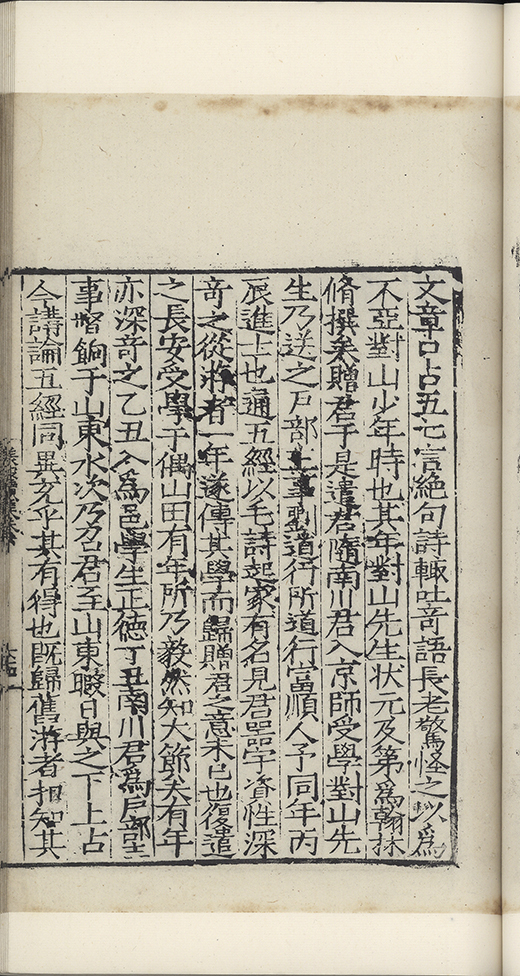 文章口占五七言絶句詩輙吐竒語長老驚怪之以爲
不亞對山少年時也其年對山先生状元及第爲翰林
脩撰矣贈君于是遣君隨南川君入京師受學對山先
生乃送之戸部主事劉道行所道行富順人予同年丙
辰進士也通五經以毛詩起家有名見君嗜學資性深
竒之從游者一年遂傳其學而歸贈君之意未已也復遣
之長安受學于偶山田有年所乃毅然知大節矣有年
亦深竒之乙丑入爲邑學生正德丁丑南川君爲戸部主
事督餉于山東水次乃召君至山東暇日與之下上古
今講論五經同異充乎其有得也旣歸舊游者相知其